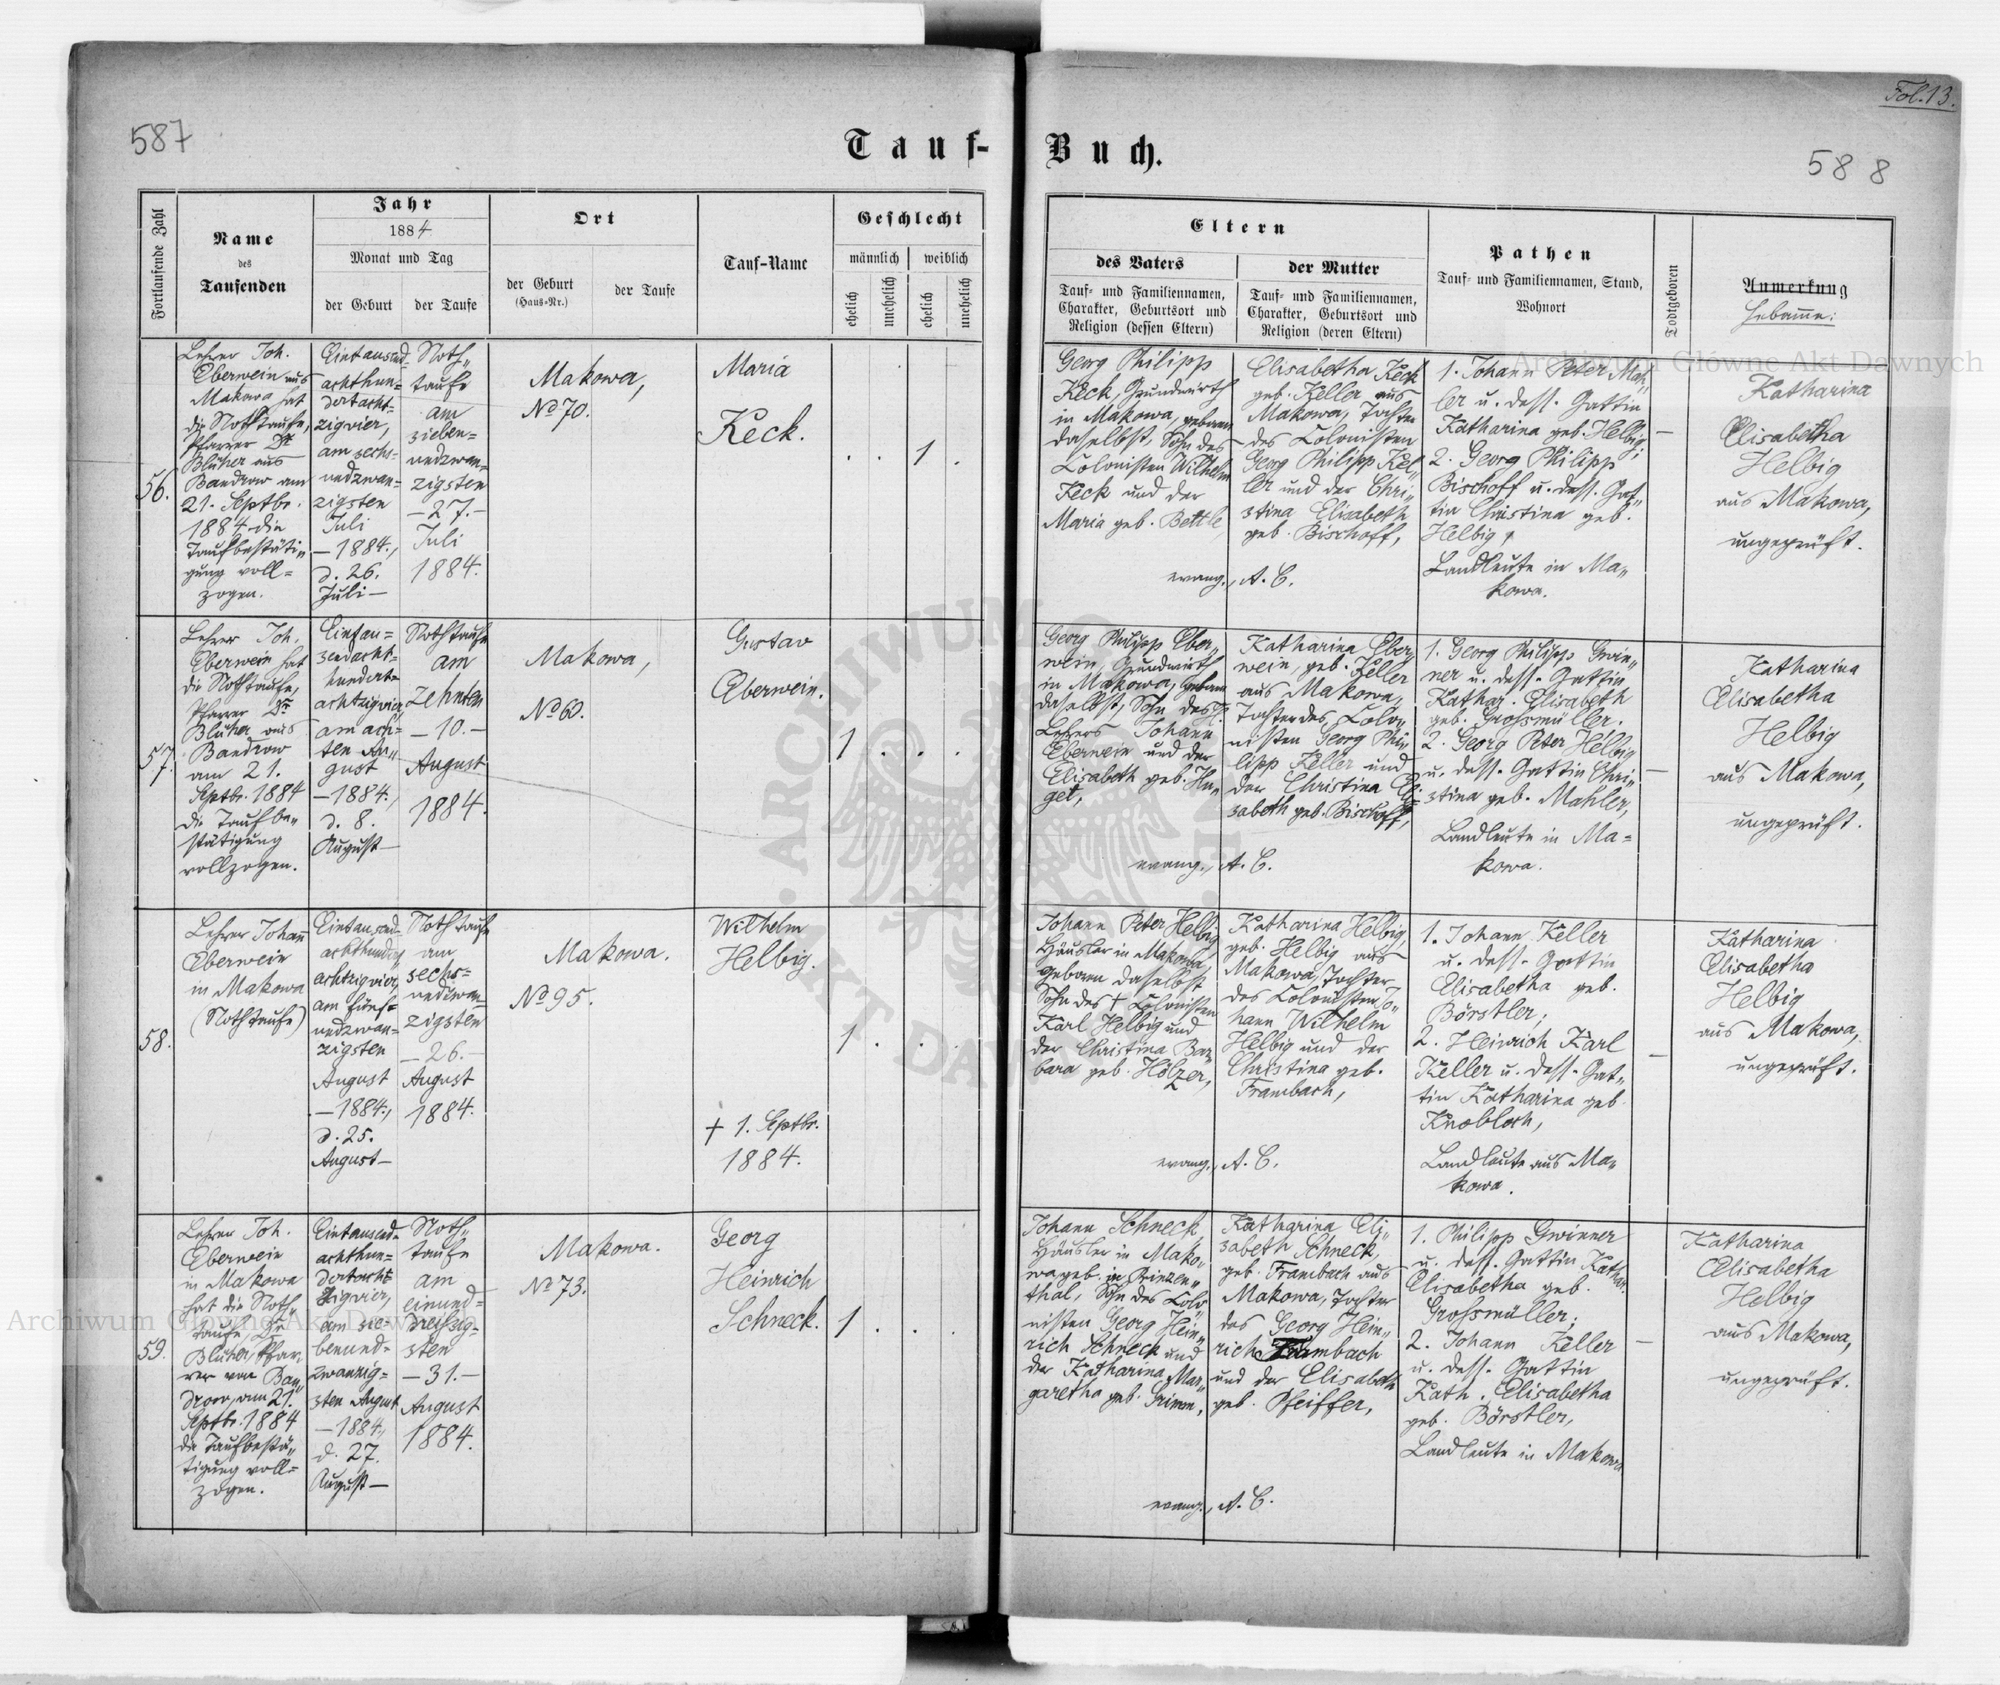 Fol. 13.
587
Tauf-Buch.
588
Fortlaufende Zahl
Name
des
Taufenden
Jahr
1884.
Monat und Tag
der Geburt
der Taufe
Ort
der Geburt
(Haus-Nr.)
der Taufe
Tauf-Name
Geschlecht
männlich
weiblich
ehelich
unehelich
ehelich
unehelich
Eltern
des Vaters
Tauf- und Familiennamen,
Charakter, Geburtsort und
Religion (dessen Eltern)
der Mutter
Tauf- und Familiennamen,
Charakter, Geburtsort und
Religion (deren Eltern)
Pathen
Tauf- und Familiennamen, Stand,
Wohnort
Todtgeboren
Anmerkung
Hebamme:
56.
Lehrer Joh.
Eberwein aus
Makowa hat
die Nothtaufe,
Pfarrer Dr
Blüher aus
Bandrow am
21. Septbr.
1884 die
Taufbestäti„
gung voll=
zogen.
Eintausend
achthun=
dertacht=
zigvier,
am sechs=
undzwan=
zigsten
Juli
—1884.,
d. 26.
Juli—
Noth„
taufe
am
sieben=
undzwan=
zigsten
—27.—
Juli
1884.
Makowa,
No 70.
Maria
Keck.
. . 1 .
Georg Philipp
Keck, Grundwirth
in Makowa, geboren
daselbst, Sohn des
Colonisten Wilhelm
Keck und der
Maria geb. Bettle,
Elisabetha Keck
geb. Keller aus
Makowa, Tochter
des Colonisten
Georg Philipp Kel„
ler und der Chri„
stina Elisabeth
geb. Bischoff,
evang., A. C.
1. Johann Peter Mah„
ler u. dess. Gattin
Katharina geb. Helbig;
2. Georg Philipp
Bischoff u. dess. Gat„
tin Christina geb.
Helbig,
Landleute in Ma„
kowa.
—
Katharina
Elisabetha
Helbig
aus Makowa,
ungeprüft.
57.
Lehrer Joh.
Eberwein hat
die Nothtaufe,
Pfarrer Dr
Blüher aus
Bandrow
am 21.
Septbr. 1884
die Taufbe„
stätigung
vollzogen.
Eintau=
sendacht=
hundert=
achtzigvier,
am ach=
ten Au„
gust
—1884.,
d. 8.
August—
Nothtaufe
am
zehnten
—10.—
August
1884.
Makowa,
No 60.
Gustav
Eberwein.
1 . . .
Georg Philipp Eber„
wein, Grundwirth
in Makowa, geboren
daselbst, Sohn des
Lehrers Johann
Eberwein und der
Elisabeth geb. Hu„
get,
Katharina Eber„
wein, geb. Keller
aus Makowa,
Tochter des Colo„
nisten Georg Phi„
lipp Keller und
der Christina Eli=
sabeth geb. Bischoff,
evang., A. C.
1. Georg Philipp Gwin„
ner u. dess. Gattin
Kathar. Elisabeth
geb. Grossmüller.
2. Georg Peter Helbig
u. dess. Gattin Chri„
stina geb. Mahler,
Landleute in Ma=
kowa.
—
Katharina
Elisabetha
Helbig
aus Makowa,
ungeprüft.
58.
Lehrer Johann
Eberwein
in Makowa
(Nothtaufe)
Eintausend
achthundert
achtzigvier,
am fünf=
undzwan=
zigsten
August
—1884.,
d. 25.
August—
Nothtaufe
am
sechs=
undzwan=
zigsten
—26.—
August
1884.
Makowa.
No 95.
Wilhelm
Helbig.
† 1. Septbr.
1884.
1 . . .
Johann Peter Helbig
Häusler in Makowa,
geboren daselbst
Sohn des † Colonisten
Karl Helbig und
der Christina Bar„
bara geb. Hölzer,
Katharina Helbig,
geb. Helbig aus
Makowa, Tochter
des Colonisten Jo„
hann Wilhelm
Helbig und der
Christina geb.
Frambach,
evang., A. C.
1. Johann Keller
u. dess. Gattin
Elisabetha geb.
Börstler;
2. Heinrich Karl
Keller u. dess. Gat„
tin Katharina geb.
Knobloch,
Landleute aus Ma„
kowa.
—
Katharina
Elisabetha
Helbig
aus Makowa,
ungeprüft.
59.
Lehrer Joh.
Eberwein
in Makowa
hat die Noth„
taufe, Dr
Blüher, Pfar„
rer von Ban„
drow, am 21.
Septbr. 1884
die Taufbestä„
tigung voll=
zogen.
Eintausend
achthun=
dertacht
zigvier,
am sie=
benund=
zwanzig=
sten August
—1884.,
d. 27.
August—
Noth„
taufe
am
einund=
dreissig=
sten
—31.—
August
1884.
Makowa.
No 73.
Georg
Heinrich
Schneck.
1 . . .
Johann Schneck,
Häusler in Mako„
wa geb. in Prinzen„
thal, Sohn des Colo„
nisten Georg Hein„
rich Schneck und
der Katharina Mar„
garetha geb. Grimm,
Katharina Eli„
sabeth Schneck,
geb. Frambach aus
Makowa, Tochter
des Georg Hein„
rich Frambach
und der Elisabeth
geb. Pfeiffer,
evang., A. C.
1. Philipp Gwinner
u. dess. Gattin Kathar.
Elisabetha geb.
Grossmüller;
2. Johann Keller
u. dess. Gattin
Kath. Elisabetha
geb. Börstler,
Landleute in Makowa
—
Katharina
Elisabetha
Helbig
aus Makowa,
ungeprüft.
Archiwum Główne Akt Dawnych